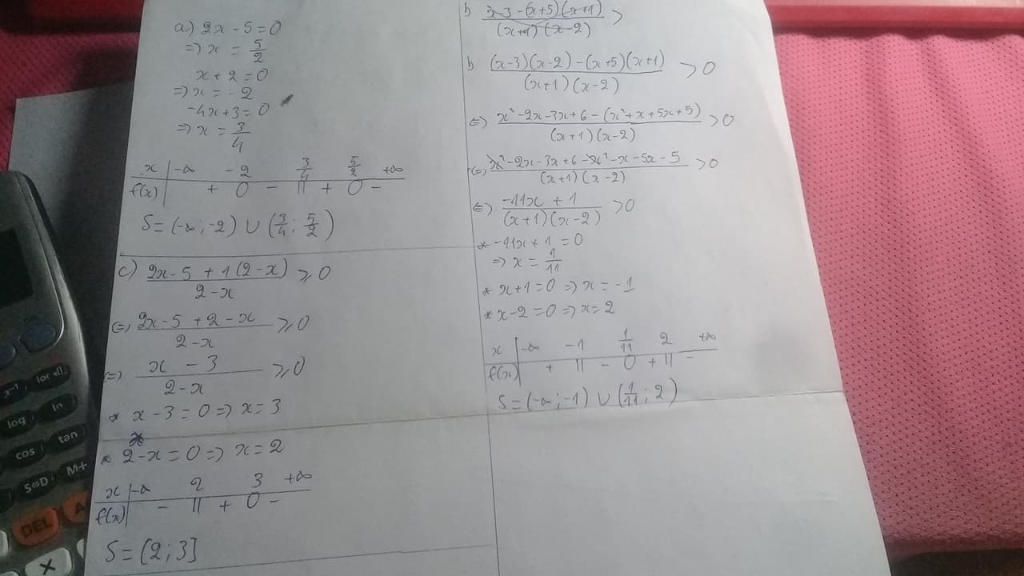 a) 2x - 5 = 0
=> x = 5/2
x + 2 = 0
=> x = -2
-4x + 3 = 0
=> x = 3/4
x | -∞ -2 3/4 5/2 +∞
f(x) | + 0 - || + 0 -
S = (-∞; -2) ∪ (3/4; 5/2)
c) (2x - 5 + 1(2 - x))/(2 - x) ≥ 0
(=) (2x - 5 + 2 - x)/(2 - x) ≥ 0
(=) (x - 3)/(2 - x) ≥ 0
* x - 3 = 0 => x = 3
* 2 - x = 0 => x = 2
x | -∞ 2 3 +∞
f(x) | - || + 0 -
S = (2; 3]
b (x-3-(x+5)(x+1))/((x+1)(x-2)) >
b ((x-3)(x-2) - (x+5)(x+1))/((x+1)(x-2)) > 0
(=) (x² - 2x - 3x + 6 - (x² + x + 5x + 5))/((x+1)(x-2)) > 0
(=) (x² - 2x - 3x + 6 - x² - x - 5x - 5)/((x+1)(x-2)) > 0
(=) (-11x + 1)/((x+1)(x-2)) > 0
* -11x + 1 = 0
=> x = 1/11
* x + 1 = 0 => x = -1
* x - 2 = 0 => x = 2
x | -∞ -1 1/11 2 +∞
f(x) | + || - 0 + || -
S = (-∞; -1) ∪ (1/11; 2)
x-1
log
ln
cos
tan
S⇔D
M+
DEL
A
×